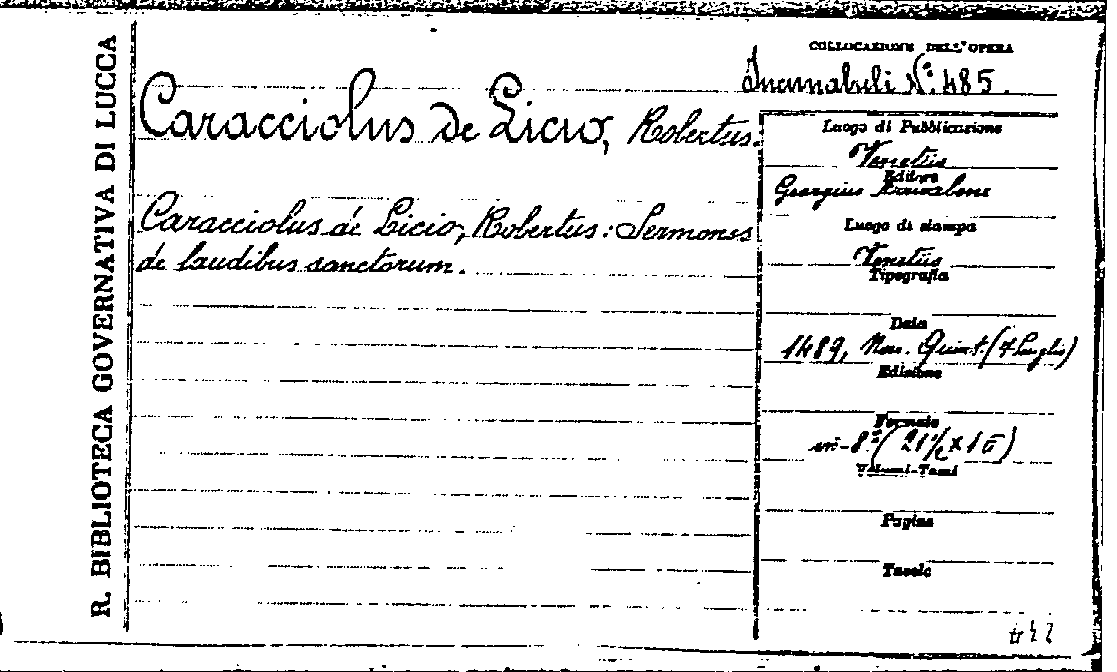 R. BIBLIOTECA GOVERNATIVA DI LUCCA
Caracciolus de Licio, Robertus.
Caracciolus de Licio, Robertus: Sermones
de laudibus sanctorum.
COLLOCAZIONE DELL'OPERA
Incunabuli N.º 485.
Luogo di Pubblicazione
Venetiis
Editore
Georgius Arrivabene
Luogo di stampa
Venetiis
Tipografia
Data
1489, Non. Quint. (7 Luglio)
Edizione
Formato
in-8.º (21½ x 15)
Volumi-Tomi
Pagine
Tavole